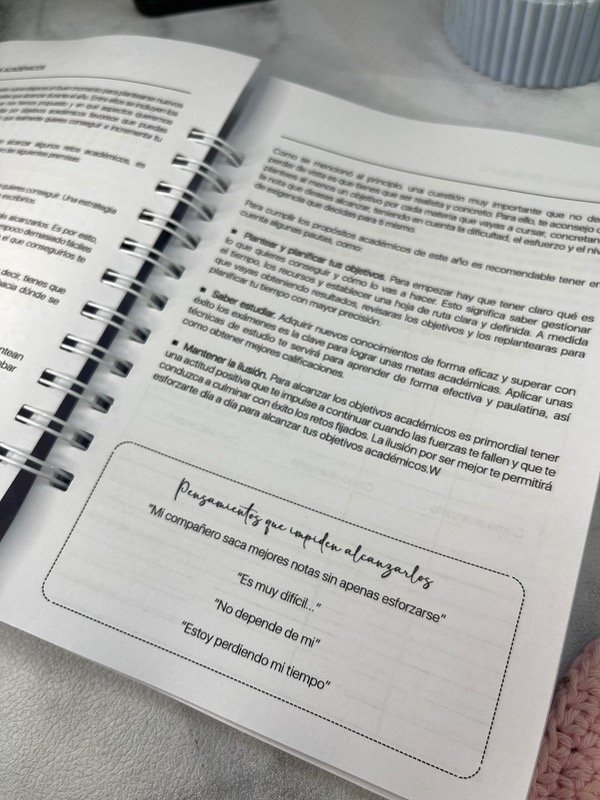 quieres conseguir. Una estrategia
alcanzarlos. Es por esto,
tampoco demasiado fáciles,
el que conseguirlos te
decir, tienes que
hacia dónde se
Como se mencionó al principio, una cuestión muy importante que no
perder de vista es que tienes que ser realista y concreto. Para ello, te aconsejo
plantees al menos un objetivo por cada materia que vayas a cursar, concretan
nota que deseas alcanzar, teniendo en cuenta la dificultad, el esfuerzo y el niv
de exigencia que decidas para ti mismo.
Para cumplir los propósitos académicos de este año es recomendable tener en
cuenta algunas pautas, como:
▪ Plantear y planificar tus objetivos. Para empezar hay que tener claro qué es
lo que quieres conseguir y cómo lo vas a hacer. Esto significa saber gestionar
el tiempo, los recursos y establecer una hoja de ruta clara y definida. A medida
que vayas obteniendo resultados, revisaras los objetivos y los replantearas para
planificar tu tiempo con mayor precisión.
▪ Saber estudiar. Adquirir nuevos conocimientos de forma eficaz y superar con
éxito los exámenes es la clave para lograr unas metas académicas. Aplicar unas
técnicas de estudio te servirá para aprender de forma efectiva y paulatina, así
como obtener mejores calificaciones.
▪ Mantener la ilusión. Para alcanzar los objetivos académicos es primordial tener
una actitud positiva que te impulse a continuar cuando las fuerzas te fallen y que te
conduzca a culminar con éxito los retos fijados. La ilusión por ser mejor te permitirá
esforzarte día a día para alcanzar tus objetivos académicos.W
Pensamientos que impiden alcanzarlos
"Mi compañero saca mejores notas sin apenas esforzarse"
"Es muy difícil..."
"No depende de mi"
"Estoy perdiendo mi tiempo"